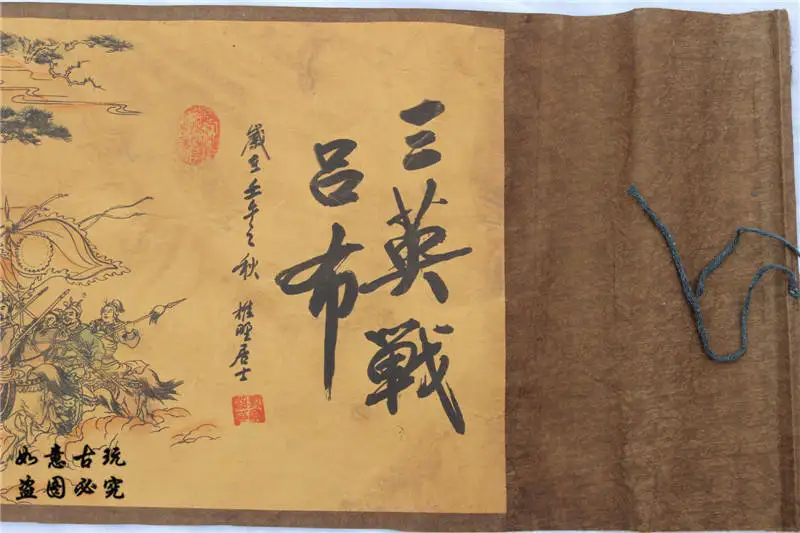 三英戰
呂布
歲在壬午之秋 雅野居士
如意古玩
盗图必究